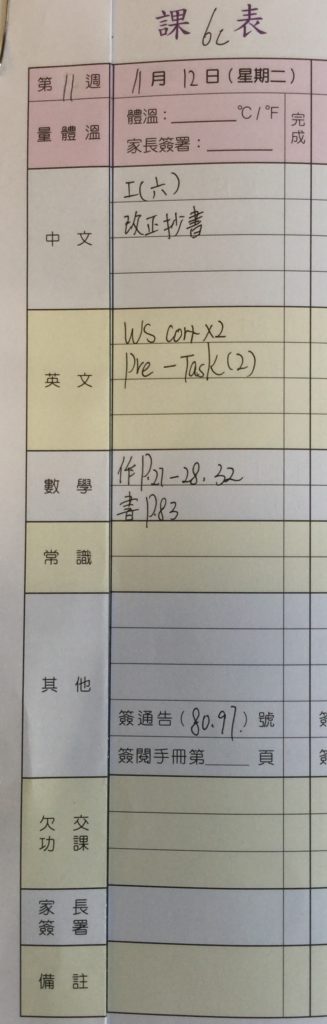 課6c表
第11週 11月12日(星期二)
量體溫 體溫：______℃/℉ 完成
家長簽署：______
中文 工(六)
改正抄書
英文 WS corr x2
Pre-Task(2)
數學 作P.27-28.32
書P.83
常識
其他
簽通告(80.97.)號
簽閱手冊第____頁
欠交功課
家長簽署
備註